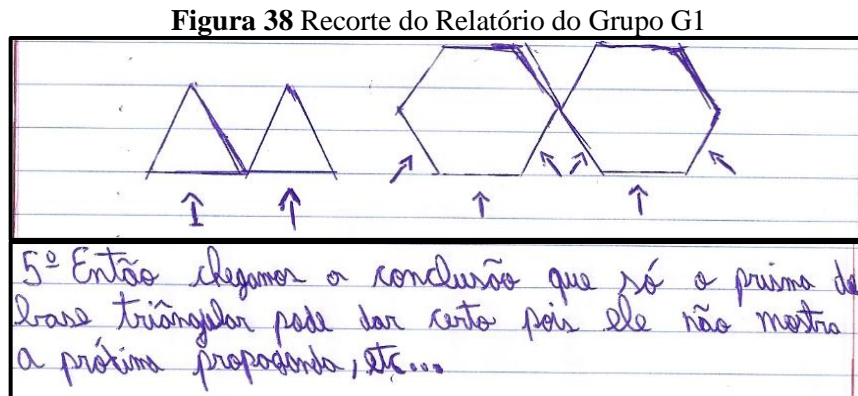 Figura 38 Recorte do Relatório do Grupo G1
5º Então chegamos a conclusão que só o prisma de
base triângular pode dar certo pois ele não mostra
a próxima propaganda, etc...